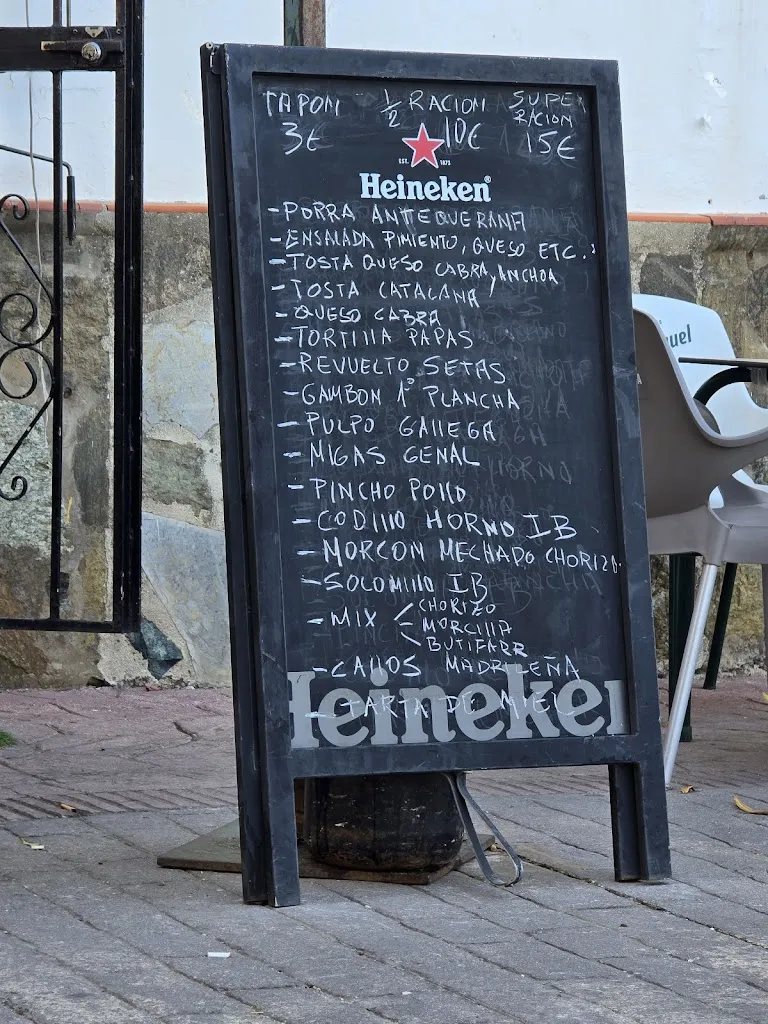 TAPON ½ RACION SUPER RACION
3€ 10€ 15€
EST. 1873
Heineken®
- PORRA ANTEQUERANA
- ENSALADA PIMIENTO, QUESO ETC..
- TOSTA QUESO CABRA y ANCHOA
- TOSTA CATALANA
- QUESO CABRA
- TORTILLA PAPAS
- REVUELTO SETAS
- GAMBON 1º PLANCHA
- PULPO GALLEGA
- MIGAS GENAL
- PINCHO POLLO
- CODILLO HORNO IB
- MORCON MECHADO CHORIZO.
- SOLOMILLO IB
- MIX < CHORIZO
MORCILLA
BUTIFARR
- CALLOS MADRILEÑA
- TARTA DE MIEL
Heineken
uel